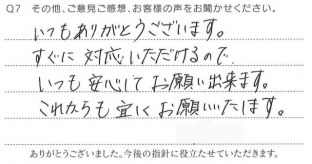 Q7 その他、ご意見ご感想、お客様の声をお聞かせください。
いつもありがとうございます。
すぐに対応いただけるので、
いつも安心してお願い出来ます。
これからも宜くお願いいたします。
ありがとうございました。今後の指針に役立たせていただきます。